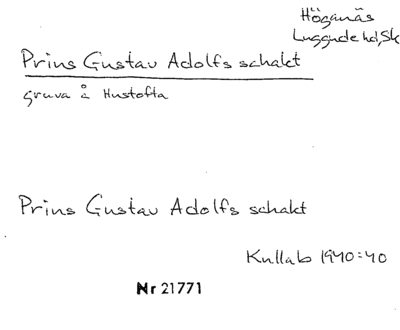 Höganäs
Luggude hd, Sk
Prins Gustav Adolfs schakt
gruva å Hustofta
Prins Gustav Adolfs schakt
Kullab 1940:40
Nr 21771